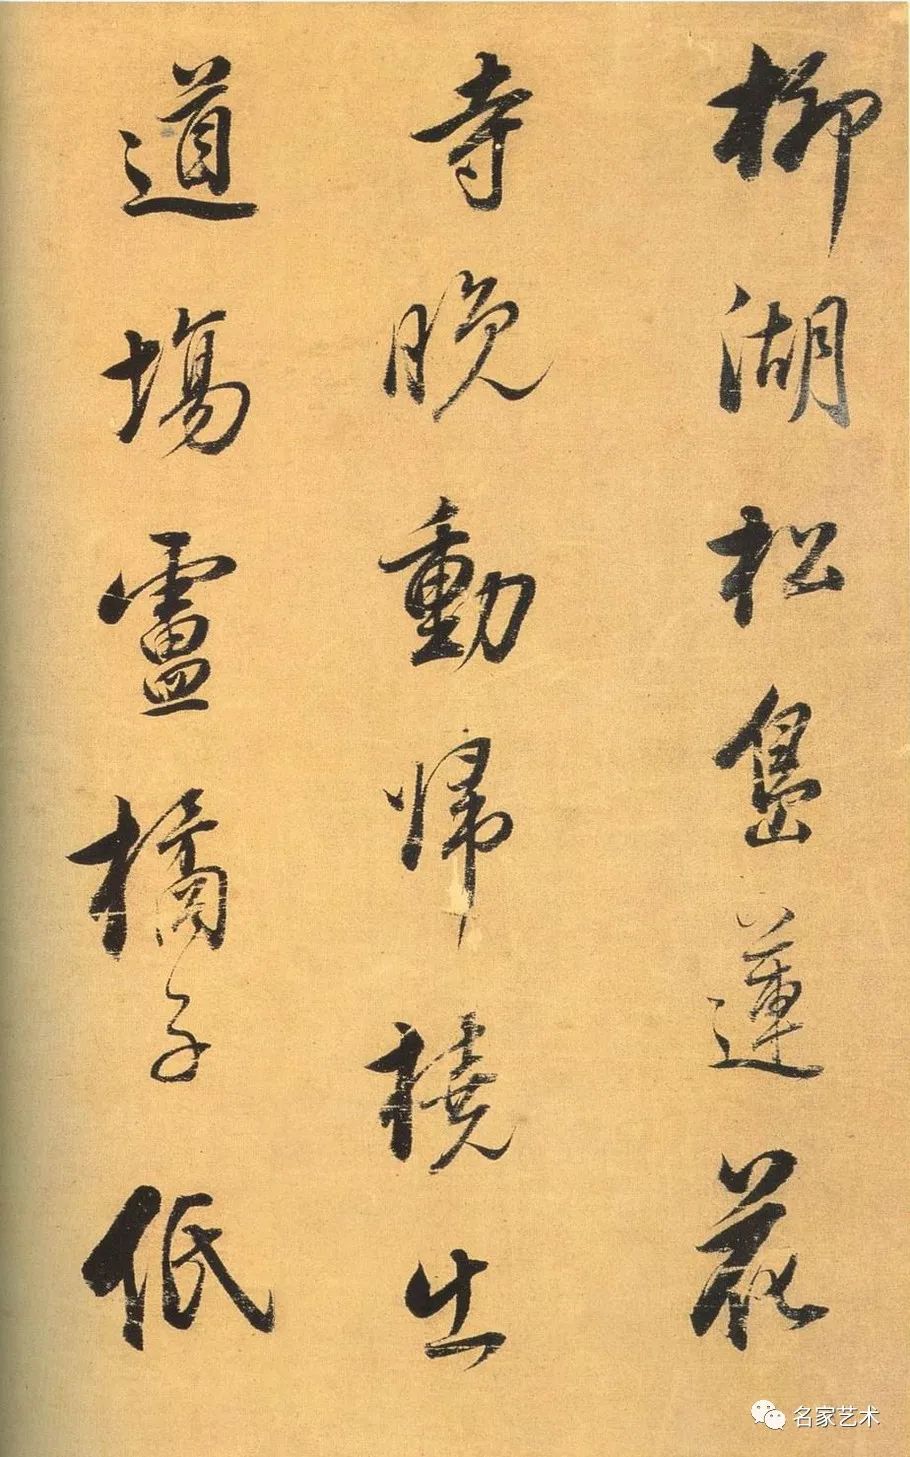 柳湖松島蓮花
寺晚動歸橈出
道場盧橘子低
名家艺术